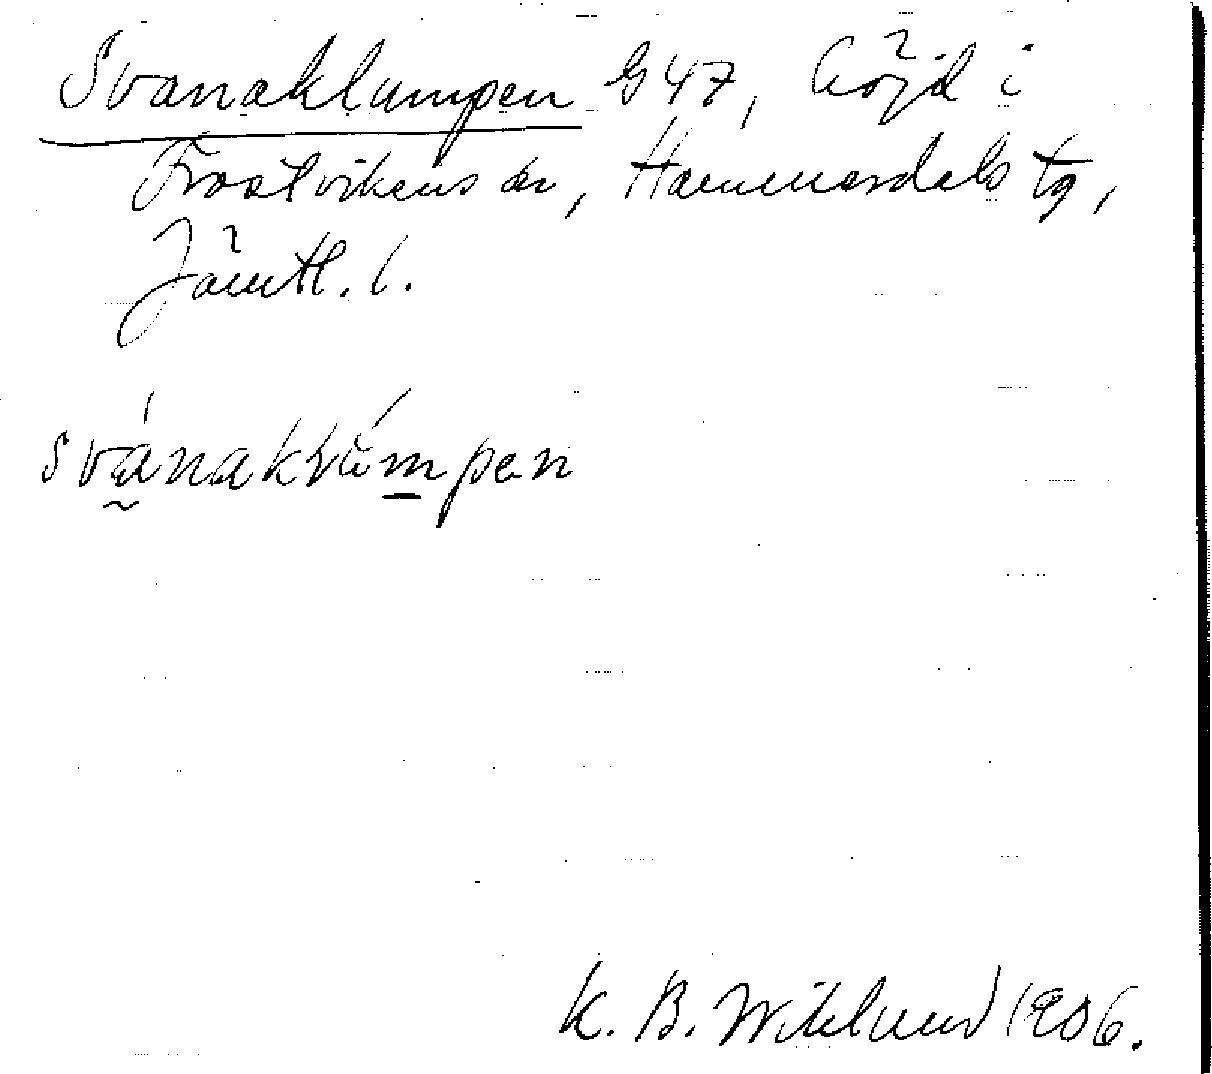 Svanaklumpen G 47, höjd i
Frostvikens sn, Hammerdals tg,
Jämtl. l.
svánaklúmpen
K. B. Wiklund 1906.